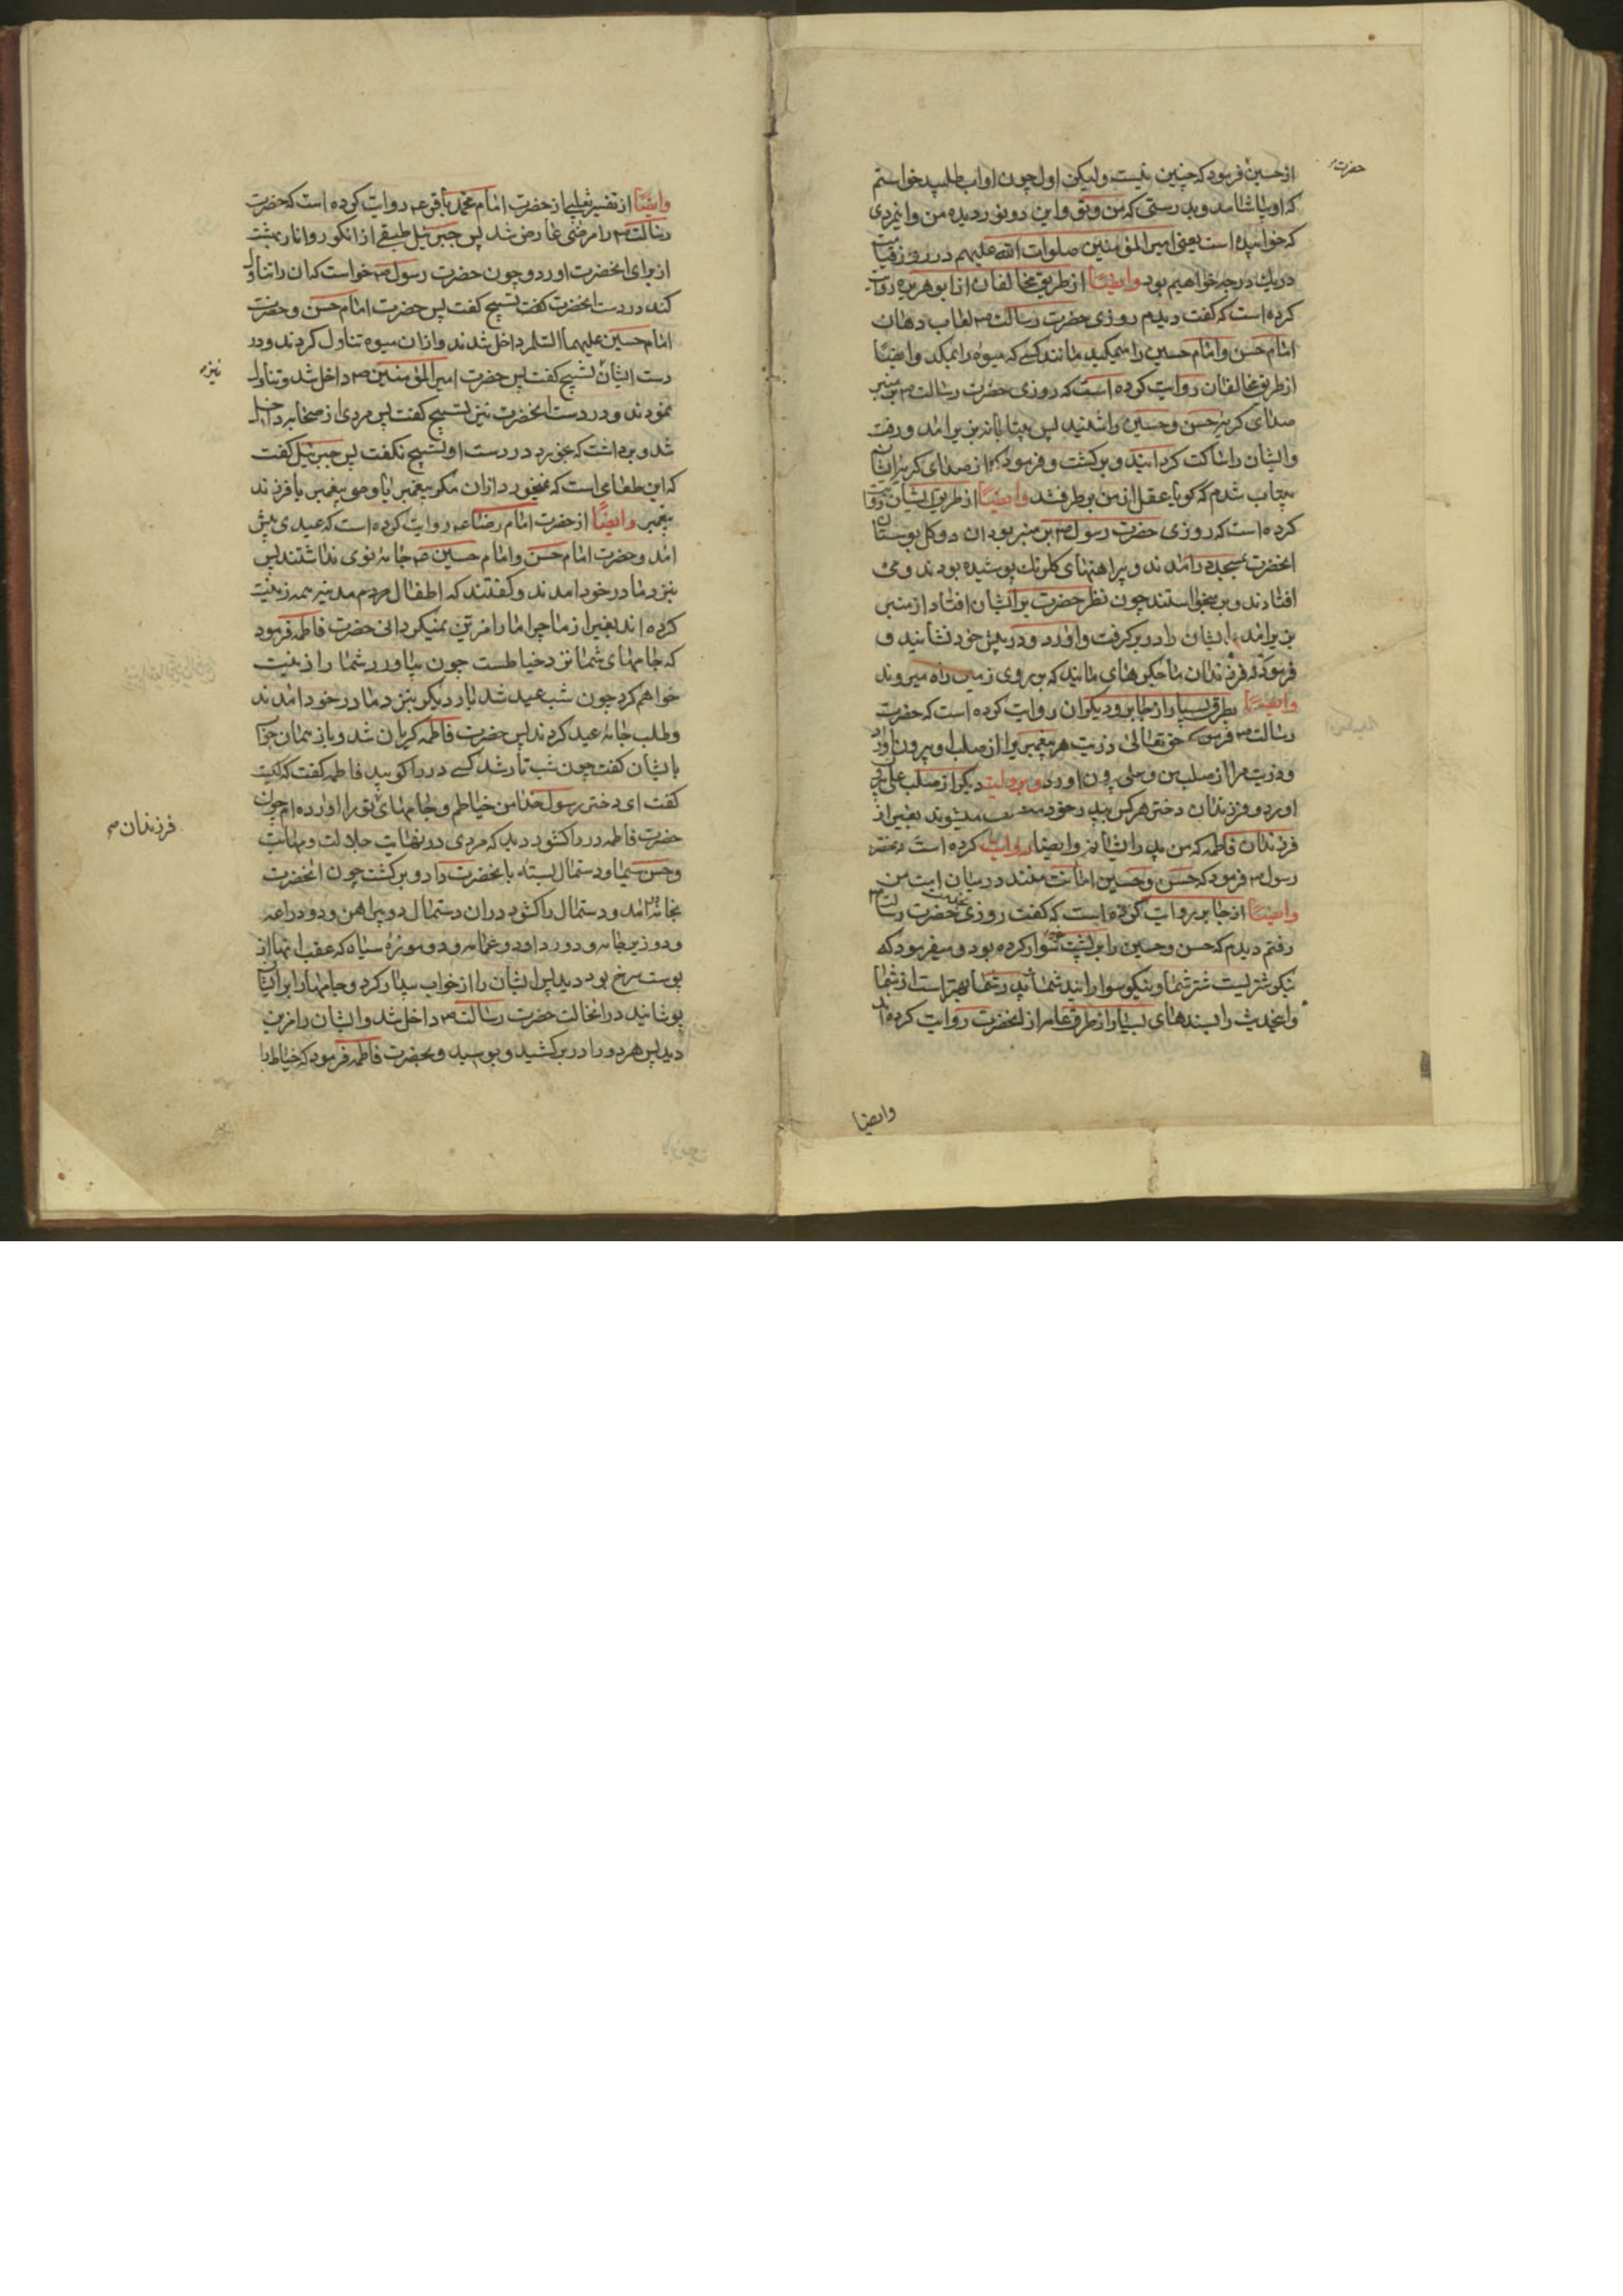 حضرت
از حسین فرمود که چنین نیست ولیکن اول چون او آب طلبید خواستم
که او بیاشامد و بدرستی که من و تو و این دو نور دیده من و این مردی
که خوابیده است یعنی امیر المؤمنین صلوات الله علیهم در روز قیامت
در یک درجه خواهیم بود وایضا از طریق مخالفان از ابو هریره روایت
کرده است که گفت دیدم روزی حضرت رسالت ص لعاب دهان
امام حسن و امام حسین را میمکید مانند کسی که میوه را بمکد وایضا
از طریق مخالفان روایت کرده است که روزی حضرت رسالت ص بر منبر
صدای گریه حسن و حسین را شنید پس بیتابانه بزیر آمد و رفت
و ایشان را ساکت گردانید و برگشت و فرمود که از صدای گریه ایشان
بیتاب شدم که گویا عقل از من برطرف شد وایضا از طریق ایشان روایت
کرده است که روزی حضرت رسول ص بر منبر بود آن دو گل بوستان
آنحضرت بمسجد در آمدند و پیراهنهای گلرنگ پوشیده بودند و می
افتادند و برمیخواستند چون نظر حضرت بر ایشان افتاد از منبر
بزیر آمد و ایشان را در بر گرفت و آورد و در پیش خود نشانید و
فرمود که فرزندان ما جگرهای مایند که بر روی زمین راه میروند
وایضا بطرق بسیار از جابر و دیگران روایت کرده است که حضرت
رسالت ص فرمود که حق تعالی ذریت هر پیغمبری را از صلب او بیرون آورد
و ذریت مرا از صلب من و علی بیرون آورد و بروایت دیگر از صلب علی بیرون
آورد و فرزندان دختر هر کس بپدر خود منسوب میشوند بغیر از
فرزندان فاطمه که من پدر ایشانم وایضا روایت کرده است که حضرت
رسول ص فرمود که حسن و حسین امانت منند در میان امت من
وایضا از جابر روایت کرده است که گفت روزی بخدمت حضرت رسالت ص
رفتم دیدم که حسن و حسین را بر پشت خود سوار کرده بود و میفرمود که
نیکو شتریست شتر شما و نیکو سوارانید شما و پدر شما بهتر است از شما
و این حدیث را بسندهای بسیار از طرق عامه از آنحضرت روایت کرده اند
وایضا
وایضا از تفسیر ثعلبی از حضرت امام محمد باقر ع روایت کرده است که حضرت
رسالت ص را مرضی عارض شد پس جبرئیل طبقی از انگور و انار بهشت
از برای آنحضرت آورد و چون حضرت رسول ص خواست که آن را تناول
کند در دست آنحضرت تسبیح گفت پس حضرت امام حسن و حضرت
امام حسین علیهما السلام داخل شدند و از آن میوه تناول کردند و در
دست ایشان تسبیح گفت پس حضرت امیر المؤمنین ص داخل شد و تناول
نیز
نمودند و در دست آنحضرت نیز تسبیح گفت پس مردی از صحابه داخل
شد و برداشت که بخورد در دست او تسبیح نگفت پس جبرئیل گفت
که این طعامی است که نمیخورد از آن مگر پیغمبر یا وصی پیغمبر یا فرزند
پیغمبر وایضا از حضرت امام رضا ع روایت کرده است که عیدی پیش
آمد و حضرت امام حسن و امام حسین ع جامه نوی نداشتند پس
بنزد مادر خود آمدند و گفتند که اطفال مردم مدینه همه زینت
کرده اند بغیر از ما چرا ما را مزین نمیگردانی حضرت فاطمه فرمود
که جامهای شما نزد خیاطست چون بیاورد شما را زینت
خواهم کرد چون شب عید شد بار دیگر بنزد مادر خود آمدند
و طلب جامه عید کردند پس حضرت فاطمه گریان شد و باز همان جواب
بایشان گفت چون شب تار شد کسی در را کوبید فاطمه گفت که کیست
گفت ای دختر رسول خدا من خیاطم و جامهای تو را آورده ام چون
فرزندان
حضرت فاطمه در را گشود دید که مردی در نهایت جلالت و مهابت
و حسن سیما و دستمال بسته بآنحضرت داد و برگشت چون آنحضرت
بخانه آمد و دستمال را گشود در آن دستمال دو پیراهن و دو دراعه
و دو زیر جامه و دو ردا و دو عمامه و دو موزه سیاه که عقب آنها از
پوست سرخ بود دید پس ایشان را از خواب بیدار کرد و جامها را بر ایشان
پوشانید در آنحالت حضرت رسالت ص داخل شد و ایشان را مزین
دید پس هر دو را در بر کشید و بوسید و بحضرت فاطمه فرمود که خیاط را